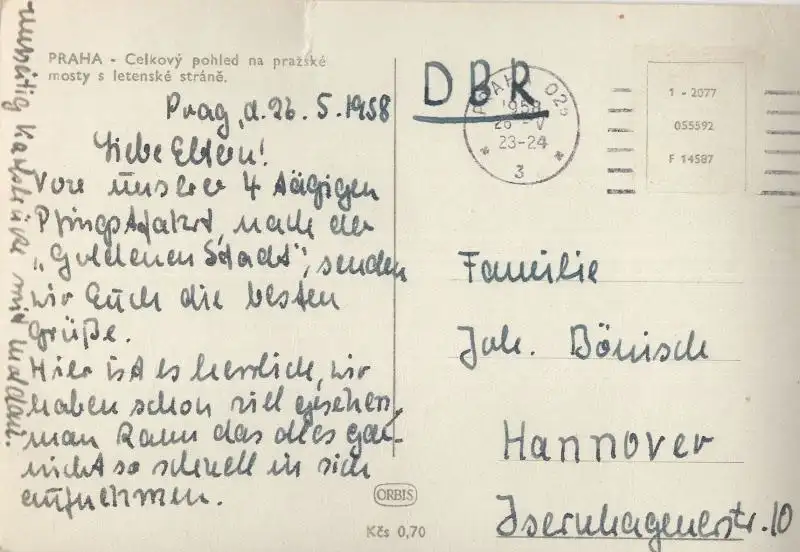 PRAHA - Celkový pohled na pražské
mosty s letenské stráně.
Prag, d. 26. 5. 1958
Liebe Eltern!
Von unserer 4 tägigen
Pfingstfahrt, nach der
„Goldenen Stadt", senden
wir Euch die besten
Grüße.
Hier ist es herrlich, wir
haben schon viel gesehen,
man kann das alles gar
nicht so schnell in sich
aufnehmen.
Karlsbrücke mit Moldau.
DBR
PRAHA 025
1958
26 - V
23-24
3
1 - 2077
055592
F 14587
Familie
Joh. Bönisch
Hannover
Isernhagenerstr. 10
ORBIS
Kčs 0,70